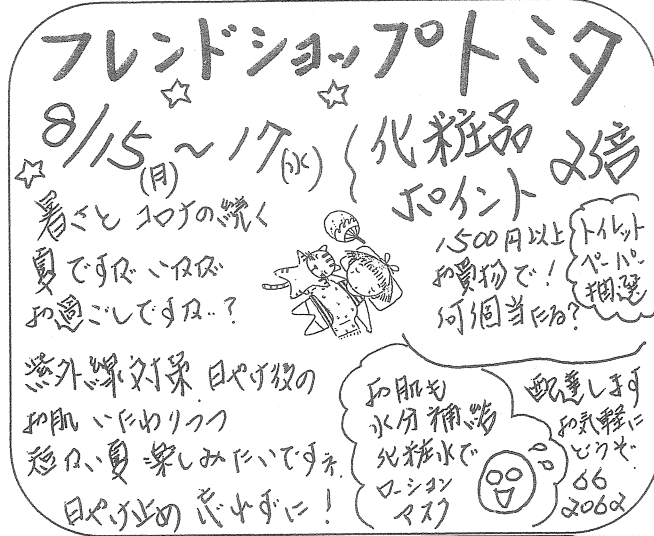 フレンドショップトミタ
8/15(月)～17(水)
化粧品
ポイント 2倍
暑さと コロナの続く
夏ですが いかが
お過ごしですか？
1,500円以上
お買物で！
何個当たる？
トイレット
ペーパー
抽選
紫外線対策 日やけ後の
お肌 いたわりつつ
短かい夏 楽しみたいですネ
日やけ止め 忘れずに！
お肌も
水分補給
化粧水で
ローション
マスク
配達します
お気軽に
どうぞ
66
2062